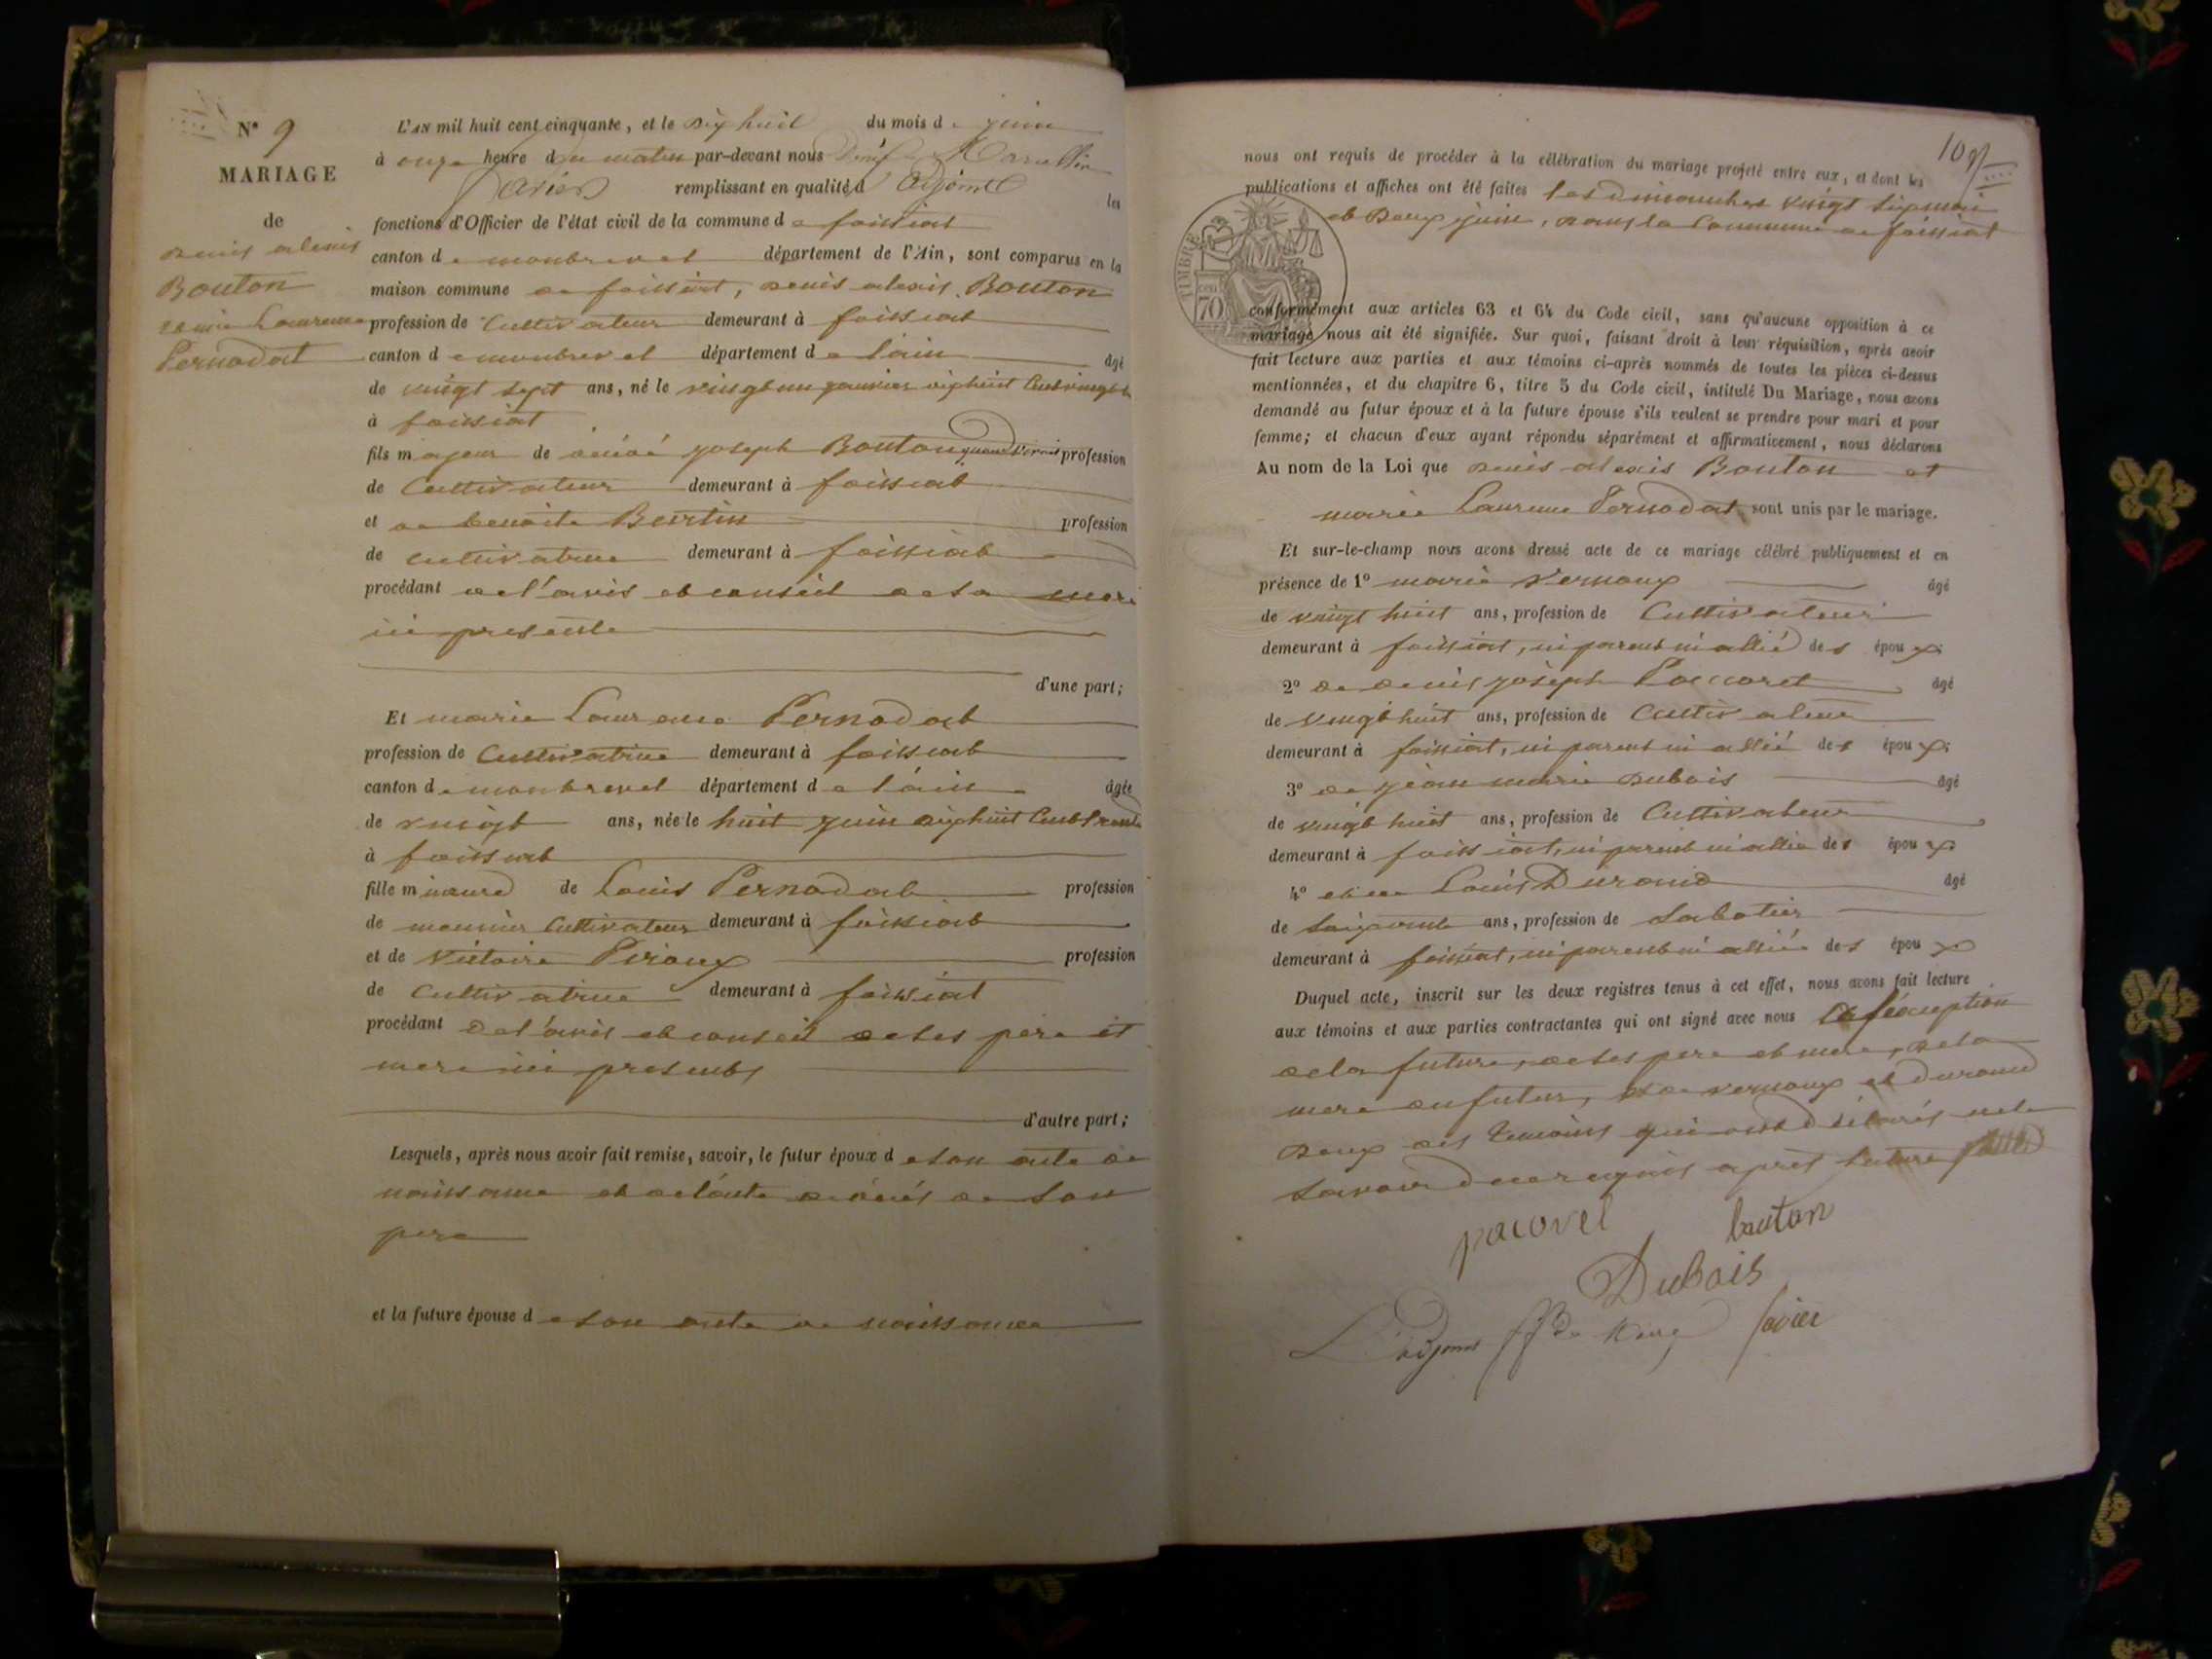 N° 9
MARIAGE
de
denis alexis
Bouton
et marie Laurence
Pernodat
L'AN mil huit cent cinquante, et le dix huit du mois de juin
à onze heure du matin par-devant nous Denis Marcellin
favier remplissant en qualité d'adjoint les
fonctions d'Officier de l'état civil de la commune de foissiat
canton de montrevel département de l'Ain, sont comparus en la
maison commune de foissiat, denis alexis Bouton
profession de Cultivateur demeurant à foissiat
canton de montrevel département de l'ain âgé
de vingt sept ans, né le vingt un janvier dix huit Cent vingt
à foissiat
fils majeur de décédé joseph Bouton quand vivait profession
de Cultivateur demeurant à foissiat
et de benoite profession
de cultivatrice demeurant à foissiat
procédant de l'avis et conseil de sa mere
ici presente
d'une part;
Et marie Laurence Pernodat
profession de Cultivatrice demeurant à foissiat
canton de montrevel département de l'ain âgée
de vingt ans, née le huit juin dix huit Cent trente
à foissiat
fille mineure de Louis Pernodat profession
de meunier Cultivateur demeurant à foissiat
et de Victoire Piroux profession
de Cultivatrice demeurant à foissiat
procédant de l'avis et conseil de ses père et
mere ici presents
d'autre part;
Lesquels, après nous avoir fait remise, savoir, le futur époux de son acte de
naissance et de l'acte de décés de son
pere
et la future épouse de son acte de naissance
10
nous ont requis de procéder à la célébration du mariage projeté entre eux, et dont les
publications et affiches ont été faites les dimanches vingt six mai
et deux juin, dans la Commune de foissiat
TIMBRE
70 cen
conformément aux articles 63 et 64 du Code civil, sans qu'aucune opposition à ce
mariage nous ait été signifiée. Sur quoi, faisant droit à leur réquisition, après avoir
fait lecture aux parties et aux témoins ci-après nommés de toutes les pièces ci-dessus
mentionnées, et du chapitre 6, titre 5 du Code civil, intitulé Du Mariage, nous avons
demandé au futur époux et à la future épouse s'ils veulent se prendre pour mari et pour
femme; et chacun d'eux ayant répondu séparément et affirmativement, nous déclarons
Au nom de la Loi que denis alexis Bouton et
marie Laurence Pernodat sont unis par le mariage.
Et sur-le-champ nous avons dressé acte de ce mariage célébré publiquement et en
présence de 1° marie Vernoux âgé
de vingt huit ans, profession de Cultivateur
demeurant à foissiat, ni parent ni allié des époux
2° de denis joseph Paccoret âgé
de vingt huit ans, profession de Cultivateur
demeurant à foissiat, ni parent ni allié des époux
3° de jean marie dubois âgé
de vingt huit ans, profession de Cultivateur
demeurant à foissiat, ni parent ni allié des époux
4° et de Louis Durand âgé
de soixante ans, profession de Sabotier
demeurant à foissiat, ni parent ni allié des époux
Duquel acte, inscrit sur les deux registres tenus à cet effet, nous avons fait lecture
aux témoins et aux parties contractantes qui ont signé avec nous à l'éxception
de la future, de ses pere et mere, de la
mere du futur, et de vernoux et durand
deux des temoins qui ont déclarés ne le
savoir de ce requis après lecture faite
pacoret bouton
Dubois
L'adjoint ff de Maire favier